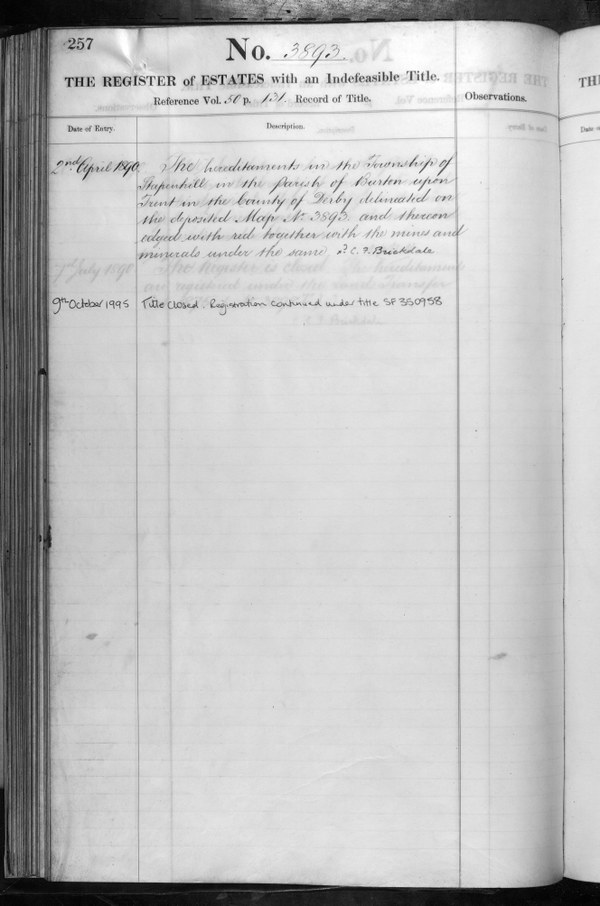 257
No. 3893.
THE REGISTER of ESTATES with an Indefeasible Title.
Reference Vol. 50 p. 131. Record of Title.
Observations.
Date of Entry.
Description.
2nd April 1890
The hereditaments in the Township of
Stapenhill in the parish of Burton upon
Trent in the County of Derby delineated on
the deposited Map No. 3893 and thereon
edged with red together with the mines and
minerals under the same, C. F. Brickdale.
9th October 1995
Title closed. Registration continued under title SF 350958
THE
Date o